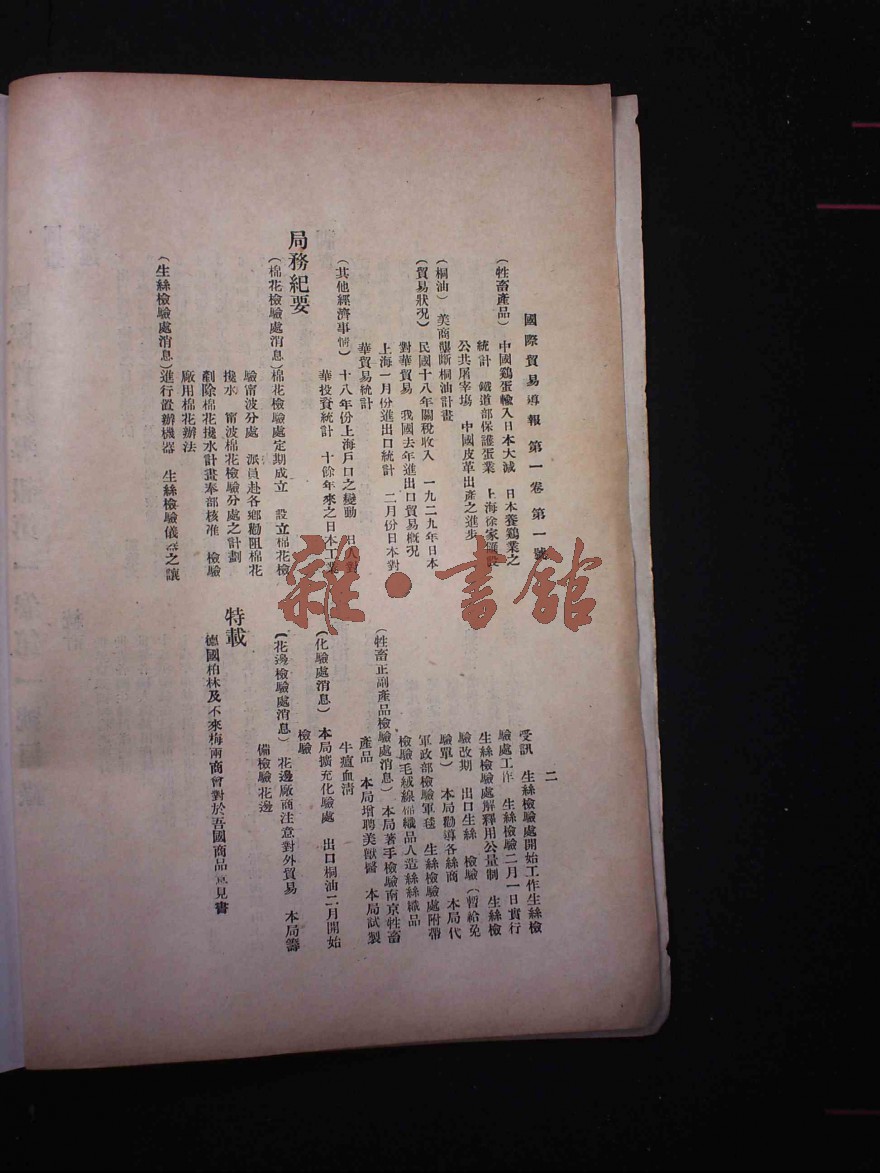 國際貿易導報 第一卷 第一號
二
(牲畜產品) 中國鷄蛋輸入日本大減 日本養鷄業之
統計 鐵道部保護蛋業 上海徐家匯設
公共屠宰塲 中國皮革出產之進步
(桐油) 美商壟斷桐油計畫
(貿易狀况) 民國十八年關稅收入 一九二九年日本
對華貿易 我國去年進出口貿易槪况
上海一月份進出口統計 二月份日本對
華貿易統計
(其他經濟事情) 十八年份上海戶口之變動 日人對
華投資統計 十餘年來之日本工業
局務紀要
(棉花檢驗處消息)棉花檢驗處定期成立 設立棉花檢
驗甯波分處 派員赴各鄉勸阻棉花
攙水 甯波棉花檢驗分處之計劃
剷除棉花攙水計畫奉部核准 檢驗
廠用棉花辦法
(生絲檢驗處消息)進行置辦機器 生絲檢驗儀器之讓
受訊 生絲檢驗處開始工作生絲檢
驗處工作 生絲檢驗二月一日實行
生絲檢驗處解釋用公量制 生絲檢
驗改期 出口生絲 檢驗(暫給免
驗單) 本局勸導各絲商 本局代
軍政部檢驗軍毯 生絲檢驗處附帶
檢驗毛絨線棉織品人造絲絲織品
(牲畜正副產品檢驗處消息) 本局著手檢驗南京牲畜
產品 本局增聘美獸醫 本局試製
牛瘟血淸
(化驗處消息) 本局擴充化驗處 出口桐油二月開始
檢驗
(花邊檢驗處消息) 花邊廠商注意對外貿易 本局籌
備檢驗花邊
特載
德國柏林及不來梅兩商會對於吾國商品意見書
雜·書館